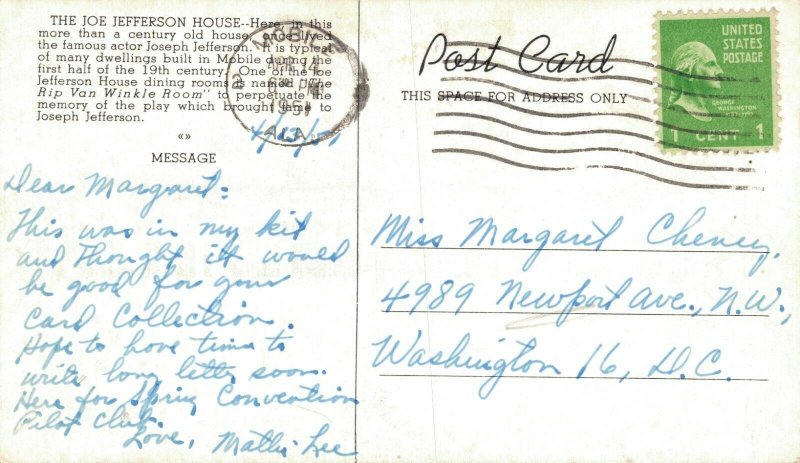 THE JOE JEFFERSON HOUSE--Here, in this
more than a century old house, once lived
the famous actor Joseph Jefferson. It is typical
of many dwellings built in Mobile during the
first half of the 19th century. One of the Joe
Jefferson House dining rooms is named "The
Rip Van Winkle Room" to perpetuate the
memory of the play which brought fame to
Joseph Jefferson.
«»
MESSAGE
Dear Margaret:
This was in my kit
and thought it would
be good for your
Card Collection.
Hope to have time to
write long letter soon.
Here for Spring Convention
Pilot Club.
Love, Mattie Lee
1951
ALA.
Post Card
THIS SPACE FOR ADDRESS ONLY
UNITED
STATES
POSTAGE
GEORGE
WASHINGTON
1 CENT 1
Miss Margaret Cheney,
4989 Newport Ave., N.W.,
Washington 16, D.C.